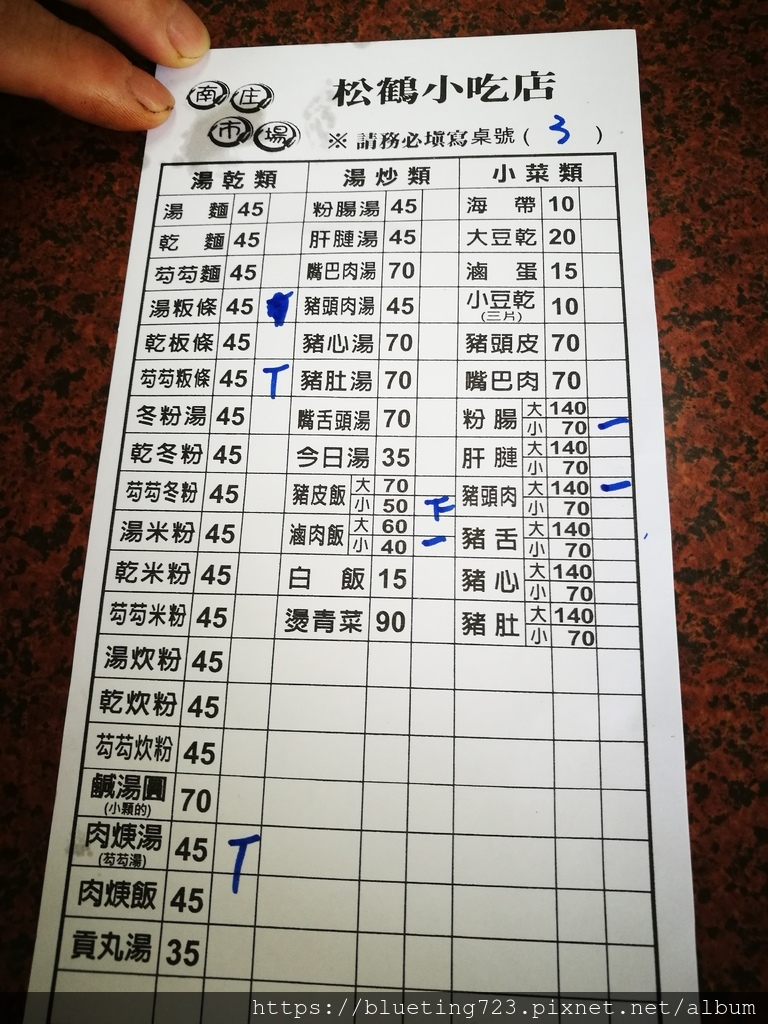 南庄 松鶴小吃店
市場 ※ 請務必填寫桌號 ( 3 )
湯乾類 湯炒類 小菜類
湯 麵 45 粉腸湯 45 海 帶 10
乾 麵 45 肝腱湯 45 大豆乾 20
芶芶麵 45 嘴巴肉湯 70 滷 蛋 15
湯粄條 45 豬頭肉湯 45 小豆乾 (三片) 10
乾板條 45 豬心湯 70 豬頭皮 70
芶芶粄條 45 T 豬肚湯 70 嘴巴肉 70
冬粉湯 45 嘴舌頭湯 70 粉腸 大 140
小 70 一
乾冬粉 45 今日湯 35 肝腱 大 140
小 70
芶芶冬粉 45 豬皮飯 大 70 豬頭肉 大 140 一
小 50 下 小 70
湯米粉 45 滷肉飯 大 60 豬舌 大 140
小 40 一 小 70
乾米粉 45 白 飯 15 豬心 大 140
小 70
芶芶米粉 45 燙青菜 90 豬肚 大 140
小 70
湯炊粉 45
乾炊粉 45
芶芶炊粉 45
鹹湯圓 (小顆的) 70
肉焿湯 (芶芶湯) 45 T
肉焿飯 45
貢丸湯 35
https://blueting723.pixnet.net/album